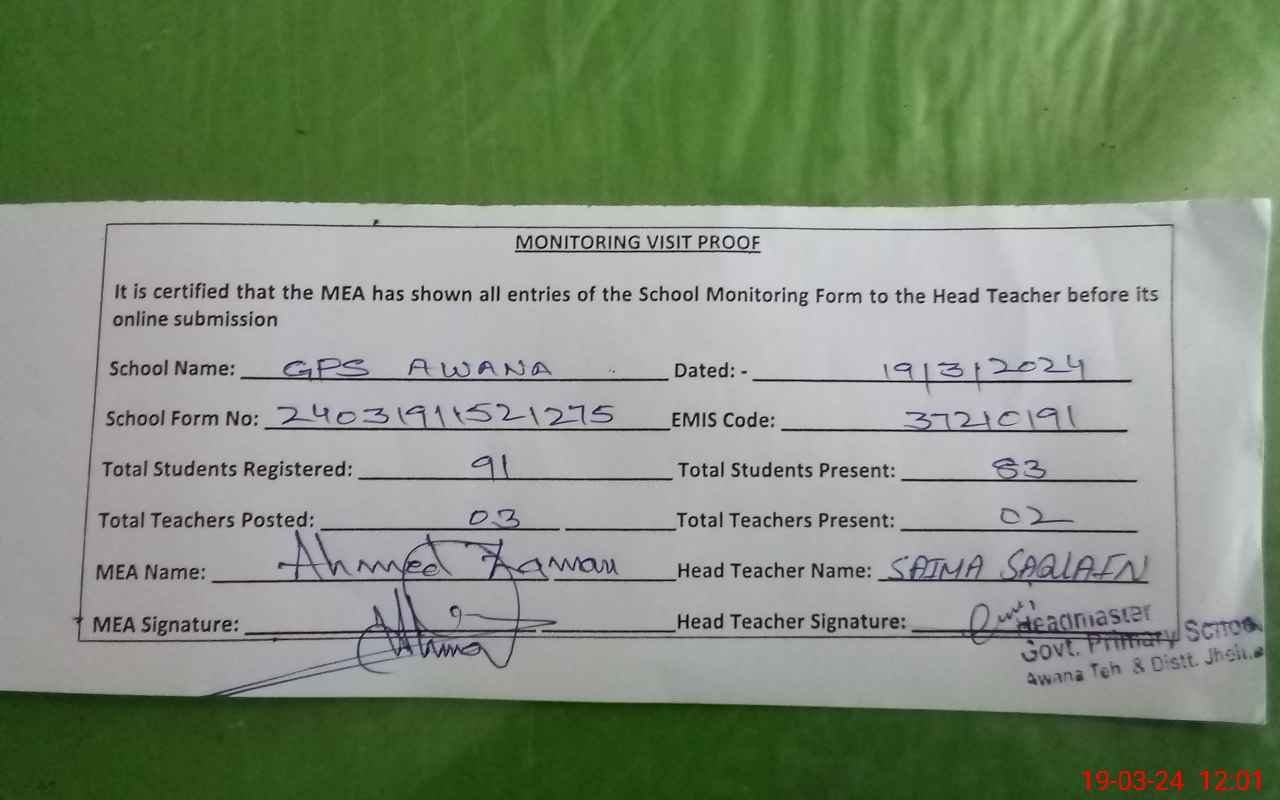 MONITORING VISIT PROOF
It is certified that the MEA has shown all entries of the School Monitoring Form to the Head Teacher before its
online submission
School Name: GPS AWANA Dated: - 19/3/2024
School Form No: 24031911521275 EMIS Code: 37210191
Total Students Registered: 91 Total Students Present: 83
Total Teachers Posted: 03 Total Teachers Present: 02
MEA Name: Ahmed Zaman Head Teacher Name: SAIMA SAQLAIN
MEA Signature: Head Teacher Signature:
Headmaster
Govt. Primary School
Awana Teh & Distt. Jhelum
19-03-24 12:01